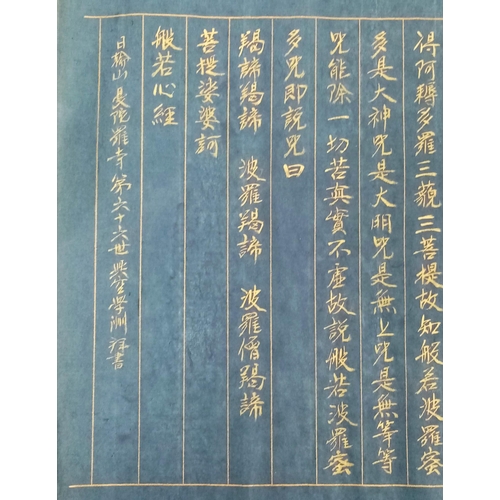 得阿耨多羅三藐三菩提故知般若波羅蜜
多是大神咒是大明咒是無上咒是無等等
咒能除一切苦真實不虛故説般若波羅蜜
多咒即説咒曰
羯諦羯諦 波羅羯諦 波羅僧羯諦
菩提娑婆訶
般若心經
日輪山曼陀羅寺第六十六世興空学洲 拝書